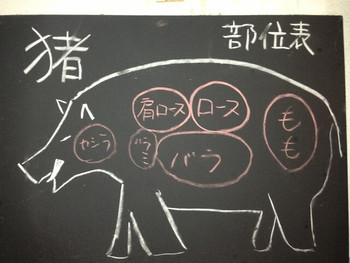 猪
部位表
カシラ
肩ロース
ロース
バラ
もも